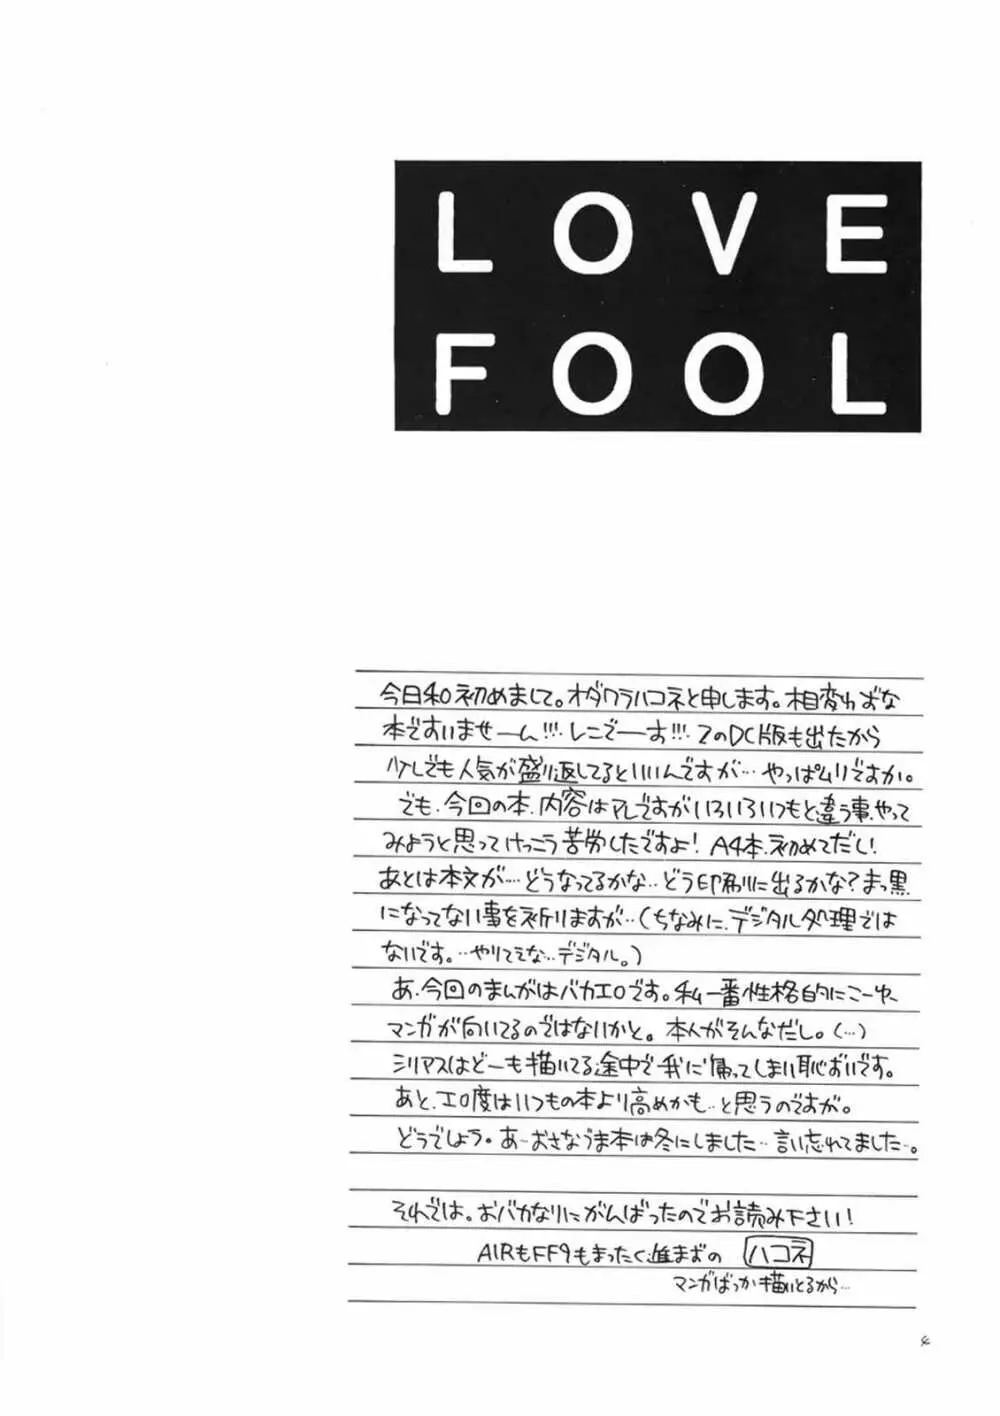 LOVE
FOOL
今日和。初めまして。オダワラハコネと申します。相変わらずな
本ですいませーん!!! レニでーす!!! 2のDC版も出たから
少しでも人気が盛り返してるといいんですが…やっぱムリですか。
でも、今回の本、内容はアレですがいろいろいつもと違う事、やって
みようと思ってけっこう苦労したですよ! A4本、初めてだし!
あとは本文が…どうなってるかな‥どう印刷に出るかな?まっ黒
になってない事を祈りますが‥(ちなみに、デジタル処理では
ないです。‥やりてえな…デジタル。)
あ、今回のまんがはバカエロです。私一番性格的にこーゆー
マンガが向いてるのではないかと。本人がそんなだし。(…)
シリアスはどーも描いてる途中で我に帰ってしまい恥ずいです。
あと、エロ度はいつもの本より高めかも‥と思うのですが。
どうでしょう。あーおさなうま本は冬にしました‥言い忘れてました‥。
それでは。おバカなりにがんばったのでお読み下さい!
AIRもFF9もまったく進まずの ハコネ
マンガばっか描いとるから…
4